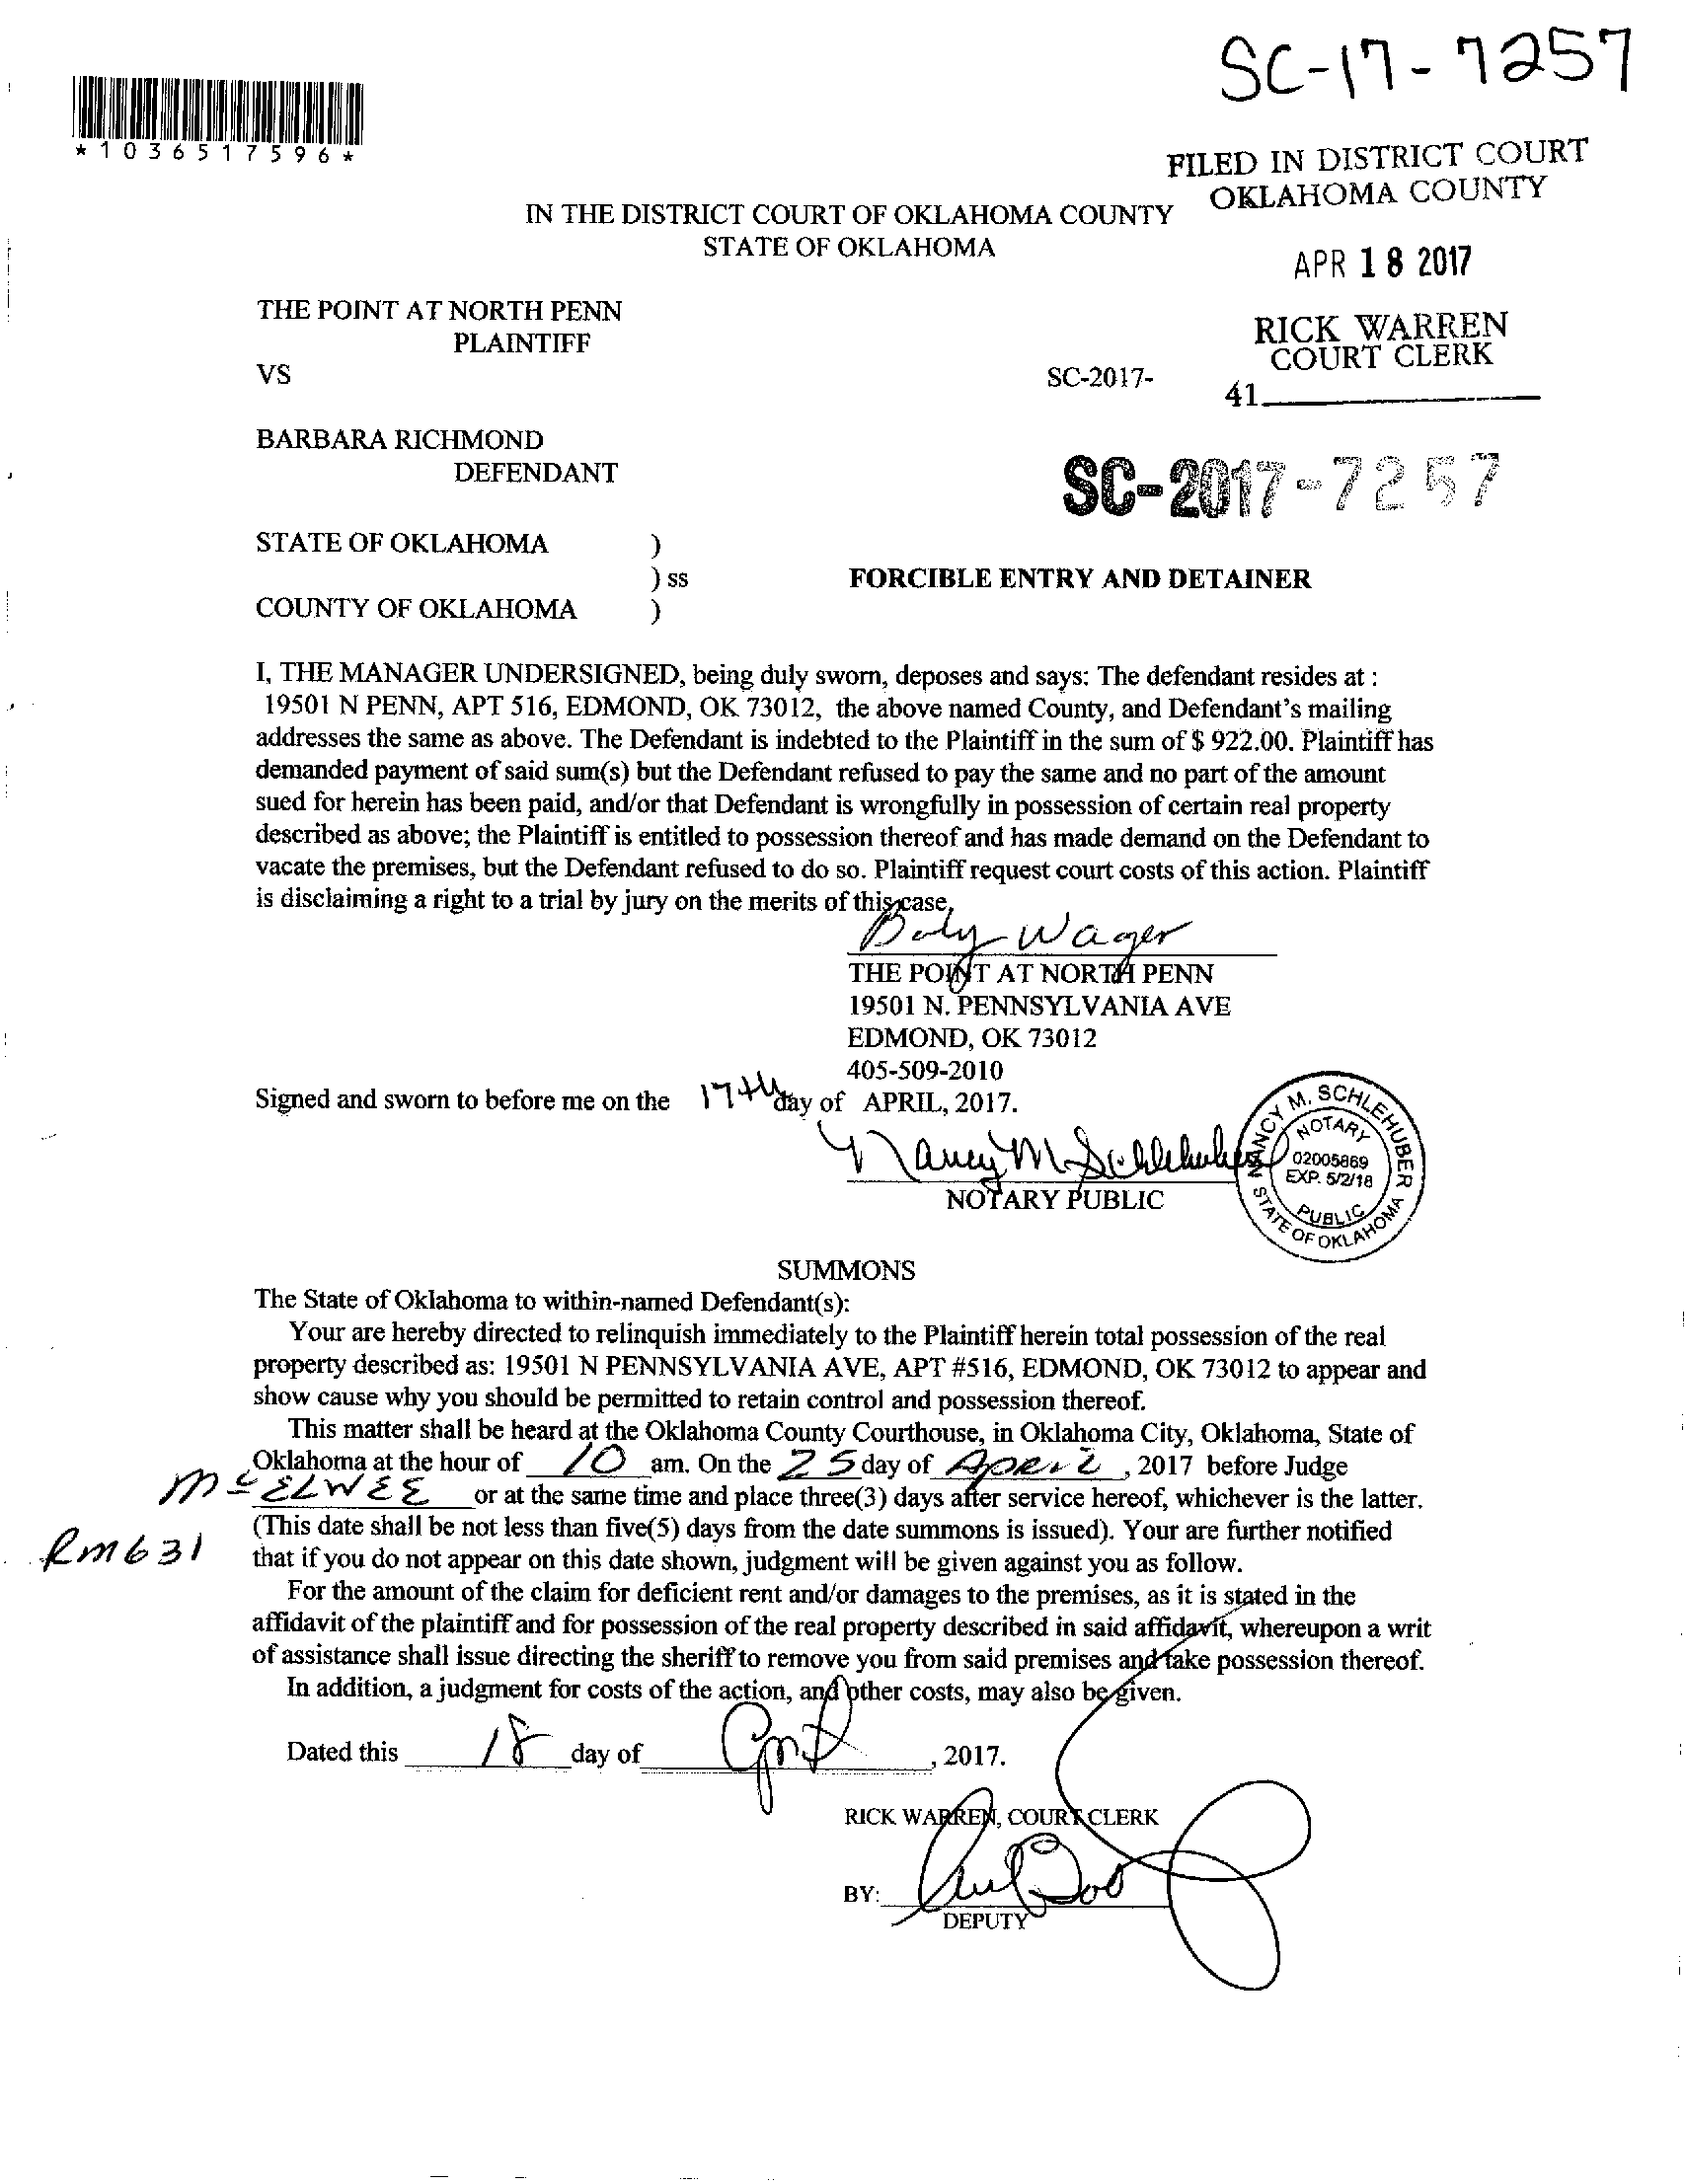 SC-17-7257
*1036517596*
FILED IN DISTRICT COURT
OKLAHOMA COUNTY
IN THE DISTRICT COURT OF OKLAHOMA COUNTY
STATE OF OKLAHOMA
APR 18 2017
THE POINT AT NORTH PENN
PLAINTIFF
RICK WARREN
COURT CLERK
VS
SC-2017-
41
BARBARA RICHMOND
DEFENDANT
SC-2017-7257
STATE OF OKLAHOMA )
) ss FORCIBLE ENTRY AND DETAINER
COUNTY OF OKLAHOMA )
I, THE MANAGER UNDERSIGNED, being duly sworn, deposes and says: The defendant resides at :
19501 N PENN, APT 516, EDMOND, OK 73012, the above named County, and Defendant's mailing
addresses the same as above. The Defendant is indebted to the Plaintiff in the sum of $ 922.00. Plaintiff has
demanded payment of said sum(s) but the Defendant refused to pay the same and no part of the amount
sued for herein has been paid, and/or that Defendant is wrongfully in possession of certain real property
described as above; the Plaintiff is entitled to possession thereof and has made demand on the Defendant to
vacate the premises, but the Defendant refused to do so. Plaintiff request court costs of this action. Plaintiff
is disclaiming a right to a trial by jury on the merits of this case.
Wager
THE POINT AT NORTH PENN
19501 N. PENNSYLVANIA AVE
EDMOND, OK 73012
405-509-2010
Signed and sworn to before me on the 17th day of APRIL, 2017.
Nancy M Schlehuber
NOTARY PUBLIC
NANCY M. SCHLEHUBER
NOTARY
02005869
EXP. 5/2/18
PUBLIC
STATE OF OKLAHOMA
SUMMONS
The State of Oklahoma to within-named Defendant(s):
Your are hereby directed to relinquish immediately to the Plaintiff herein total possession of the real
property described as: 19501 N PENNSYLVANIA AVE, APT #516, EDMOND, OK 73012 to appear and
show cause why you should be permitted to retain control and possession thereof.
This matter shall be heard at the Oklahoma County Courthouse, in Oklahoma City, Oklahoma, State of
Oklahoma at the hour of 10 am. On the 25 day of April, 2017 before Judge
McELWEE or at the same time and place three(3) days after service hereof, whichever is the latter.
Rm 631
(This date shall be not less than five(5) days from the date summons is issued). Your are further notified
that if you do not appear on this date shown, judgment will be given against you as follow.
For the amount of the claim for deficient rent and/or damages to the premises, as it is stated in the
affidavit of the plaintiff and for possession of the real property described in said affidavit, whereupon a writ
of assistance shall issue directing the sheriff to remove you from said premises and take possession thereof.
In addition, a judgment for costs of the action, and other costs, may also be given.
Dated this 18 day of April, 2017.
RICK WARREN, COURT CLERK
BY:
DEPUTY